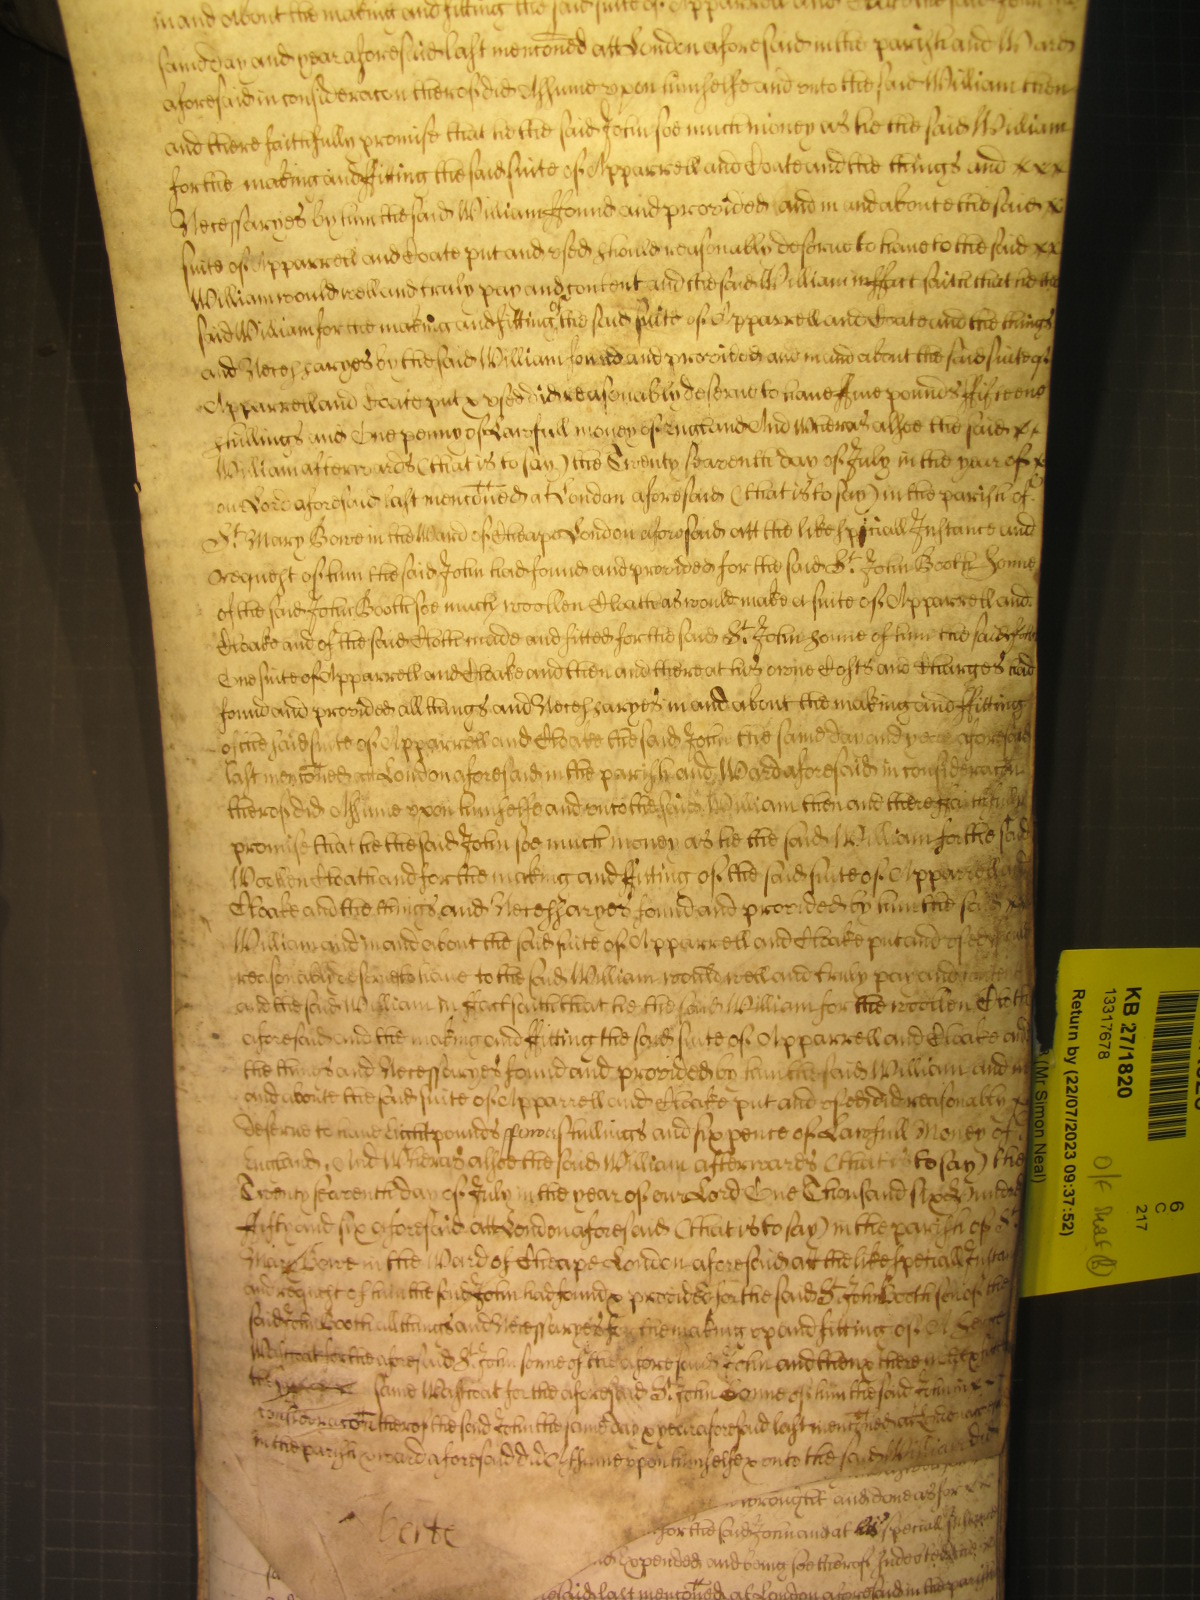 in and about the making and fitting the said suite of Apparrell and Coate the said John the
same day and yeare aforesaid last mencõned att London aforesaid in the parish and Ward
aforesaid in consideracon thereof did Assume upon himselfe and unto the said William then
and there faithfully promise that he the said John soe much money as he the said William
for the making and ffitting the said suite of Apparrell and Coate and the things and x x x
Necessaryes by him the said William ffound and provided and in and aboute the said x
suite of Apparrell and Coate put and used should reasonably deserve to have to the said xx
William would well and truly pay and content and the said William in ffact saith that he the
said William for the making and fitting of the said suite of Apparrell and Coate and the things
and Necessaryes by the said William found and provided and in and about the said suite of
Apparrell and Coate put x used did reasonably deserve to have ffive pounds ffifteene
shillings and One penny of Lawfull money of England And Wheras alsoe the said x x
William afterwards (that is to say) the Twenty Seaventh day of July in the year of x
our Lord aforesaid last mencõned at London aforesaid (that is to say) in the parish of
St. Mary Bowe in the Ward of Cheape London aforesaid att the like speciall Instance and
request of him the said John had found and provided for the said St. John Booth Sonne
of the said John Booth soe much woollen Cloath as would make a suite of Apparrell and
Cloake and of the said Cloth made and fitted for the said St. John Sonne of him the said John
One suite of Apparrell and Cloake and then and there at his owne Costs and Charges had
found and provided all things and Necessaryes in and about the making and ffitting
of the said suite of Apparrell and Cloake the said John the same day and yeare aforesaid
last mencõned at London aforesaid in the parish and Ward aforesaid in consideracõn
thereof did Assume upon himselfe and unto the said William then and there faithfully
promise that he the said John soe much money as he the said William for the said
Woollen Cloath and for the making and ffitting of the said suite of Apparrell and
Cloake and the things and Necessaryes found and provided by him the said xx
William and in and about the said suite of Apparrell and Cloake put and used should
reasonably deserve to have to the said William would well and truly pay and content
and the said William in fact saith that he the said William for the woollen Cloth
aforesaid and the making and ffitting the said suite of Apparrell and Cloake and
the things and Necessaryes found and provided by him the said William and in
and aboute the said suite of Apparrell and Cloake put and used did reasonably x
deserve to have Eight pounds shillings and six pence of Lawfull Money of
England And Wheras alsoe the said William afterwards (that is to say) the
Twenty seaventh day of July in the year of our Lord One Thousand six Hundred
fifty and six aforesaid att London aforesaid (that is to say) in the parish of St.
Mary Bowe in the Ward of Cheape London aforesaid at the like speciall Instance
and request of him the said John had found x provided for the said St. John Booth son of the
said John Booth all things and Necessaryes for the making up and fitting of A Serge
Wastcoat for the aforesaid St. John sonne of the aforesaid John and then x there
the same Wastcoat for the aforesaid St. John Sonne of him the said John in x x
consideracõn thereof the said John the same day x yeare aforesaid last mencõned at London
in the parish x ward aforesaid did Assume upon himselfe x unto the said William
wrought and done as for x x
for the said John and at his special Instance
Expended and being soe thereof Indebted
said last mencõned at London aforesaid in the parish
KB 27/1820
13317678
Return by (22/07/2023 09:37:52)
(Mr Simon Neal)
6
C
217